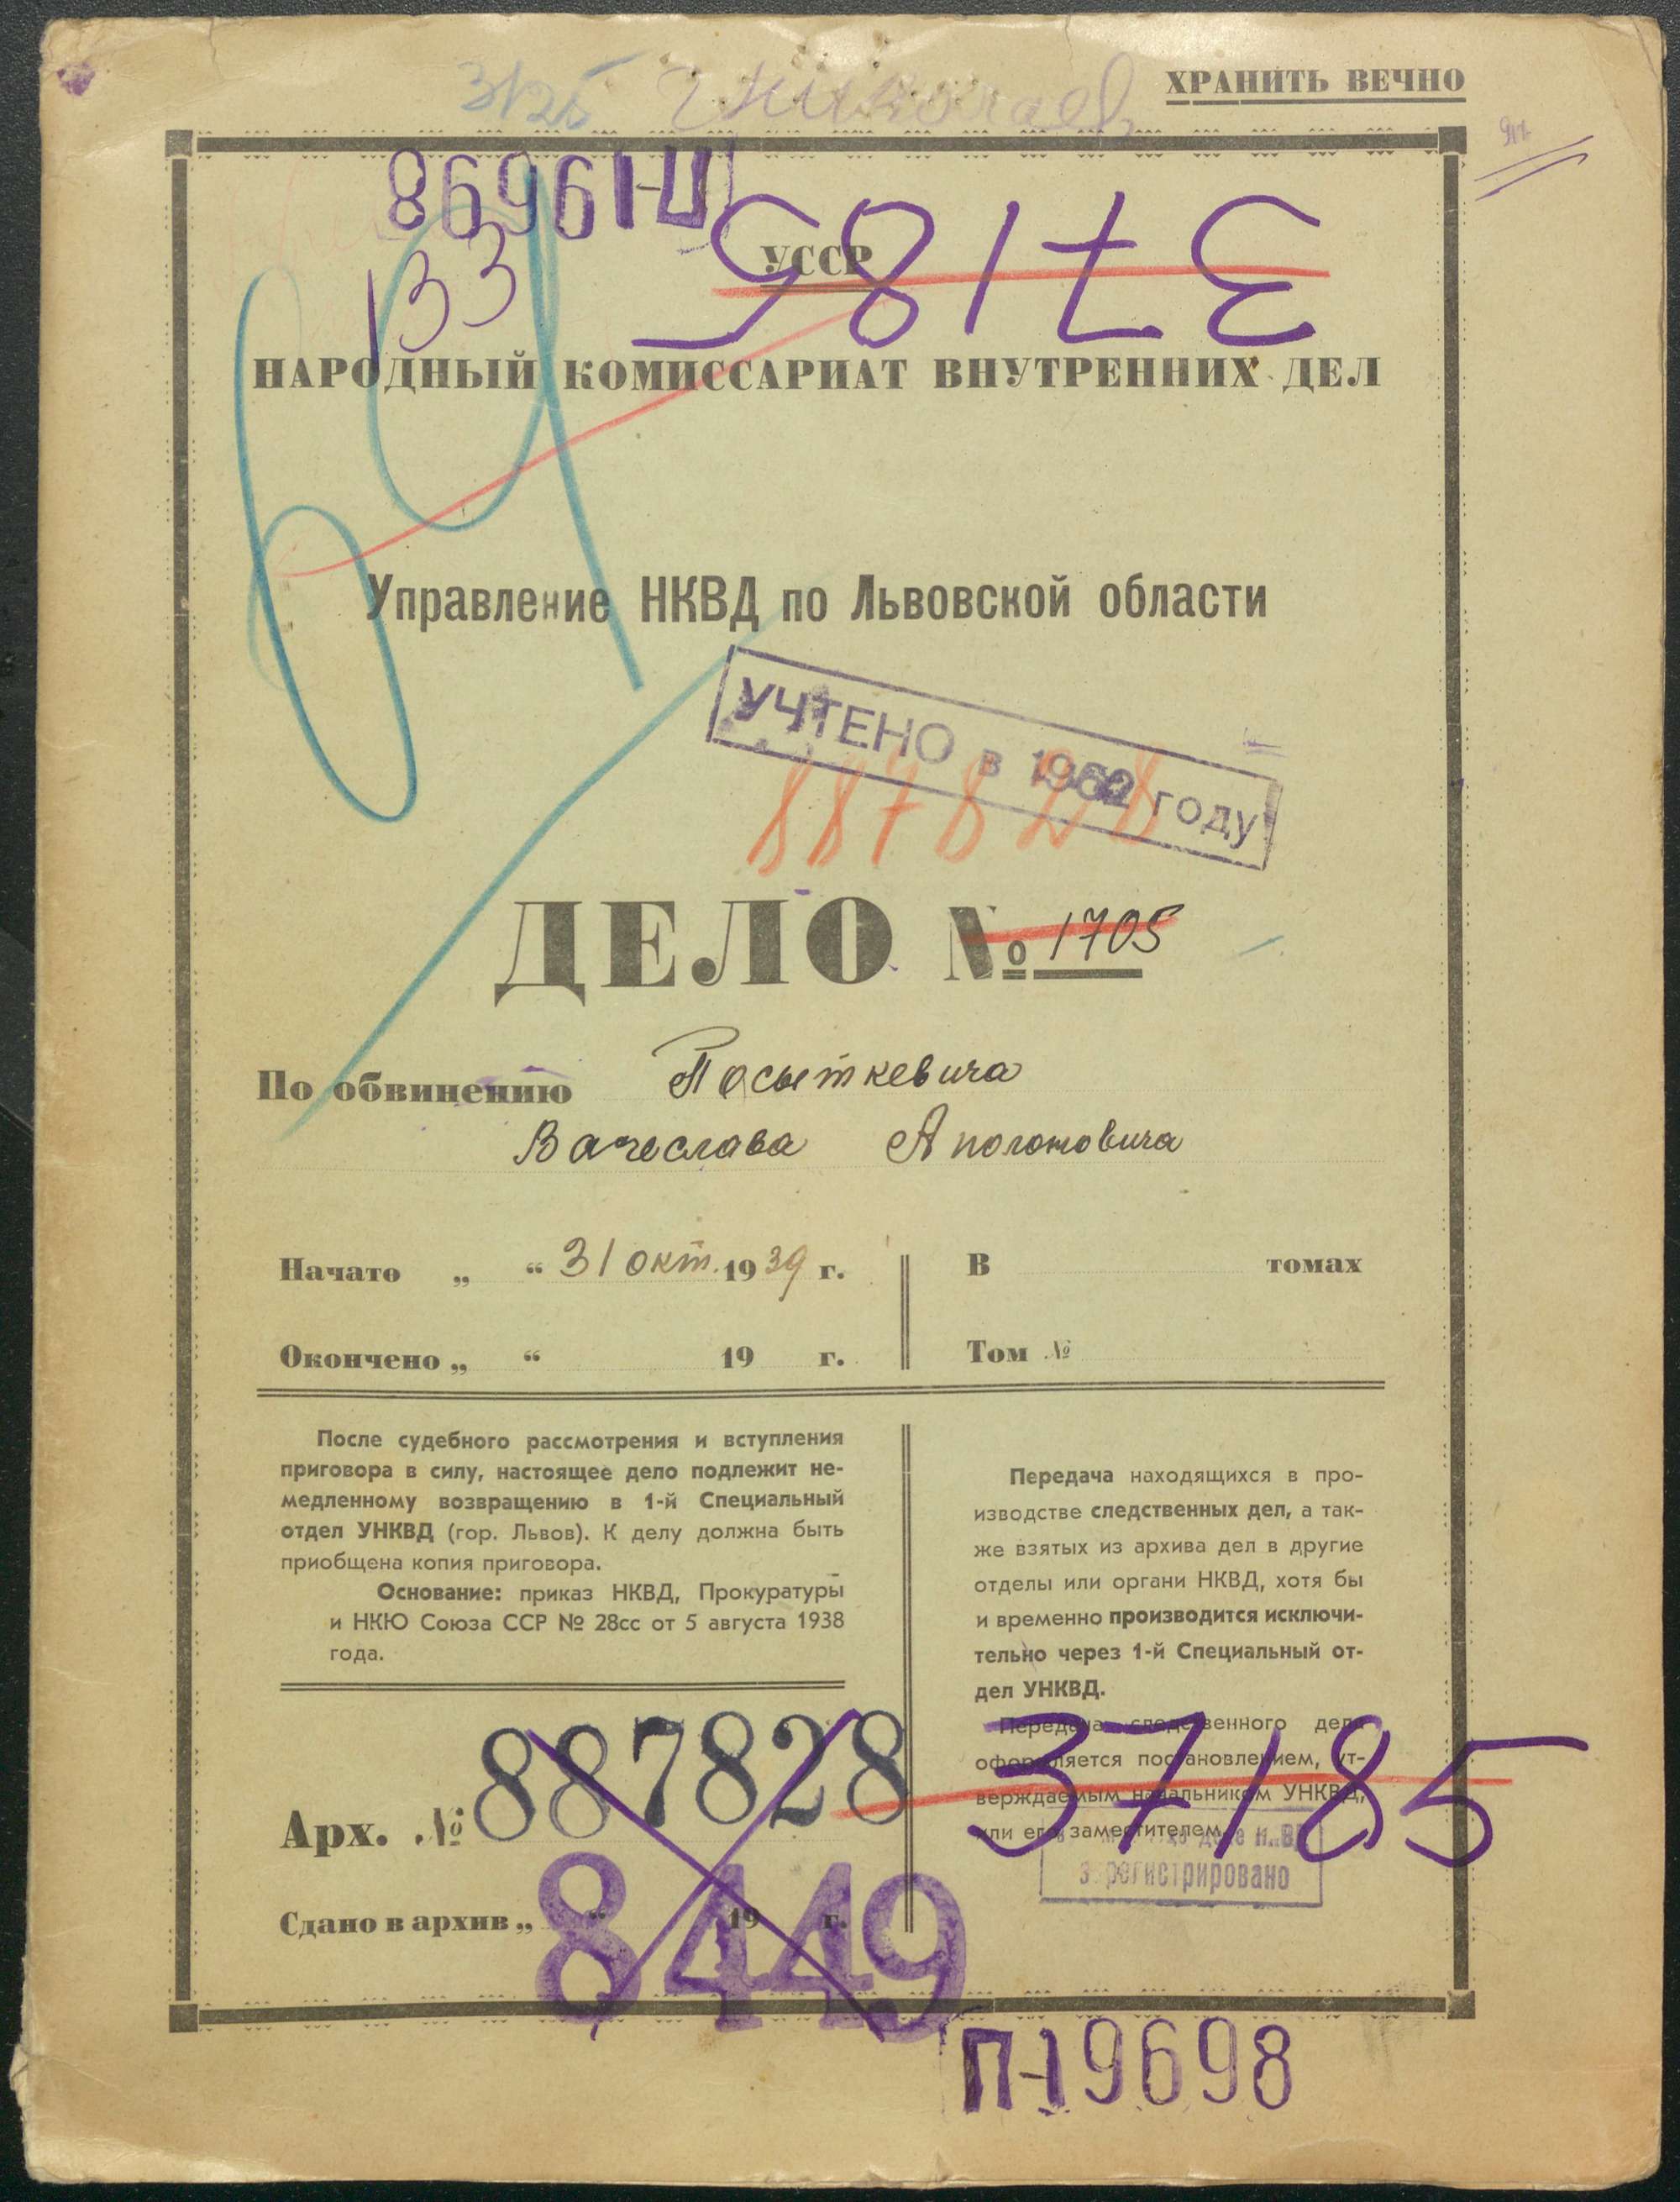 ХРАНИТЬ ВЕЧНО
П-19698
133
64
37185
УССР
НАРОДНЫЙ КОМИССАРИАТ ВНУТРЕННИХ ДЕЛ
Управление НКВД по Львовской области
УЧТЕНО в 1962 году
887828
ДЕЛО № 1705
По обвинению Посыткевича
Вачеслава Аполоновича
Начато „ “ 31 окт. 1939 г.
Окончено „ “ 19 г.
В томах
Том №
После судебного рассмотрения и вступления
приговора в силу, настоящее дело подлежит не-
медленному возвращению в 1-й Специальный
отдел УНКВД (гор. Львов). К делу должна быть
приобщена копия приговора.
Основание: приказ НКВД, Прокуратуры
и НКЮ Союза ССР № 28сс от 5 августа 1938
года.
Передача находящихся в про-
изводстве следственных дел, а так-
же взятых из архива дел в другие
отделы или органи НКВД, хотя бы
и временно производится исключи-
тельно через 1-й Специальный от-
дел УНКВД.
Передача следственного дела
оформляется постановлением, ут-
верждаемым начальником УНКВД,
или его заместителем.
37185
зарегистрировано
Арх. № 887828
Сдано в архив „ “ 19 г.
8449
П-19698